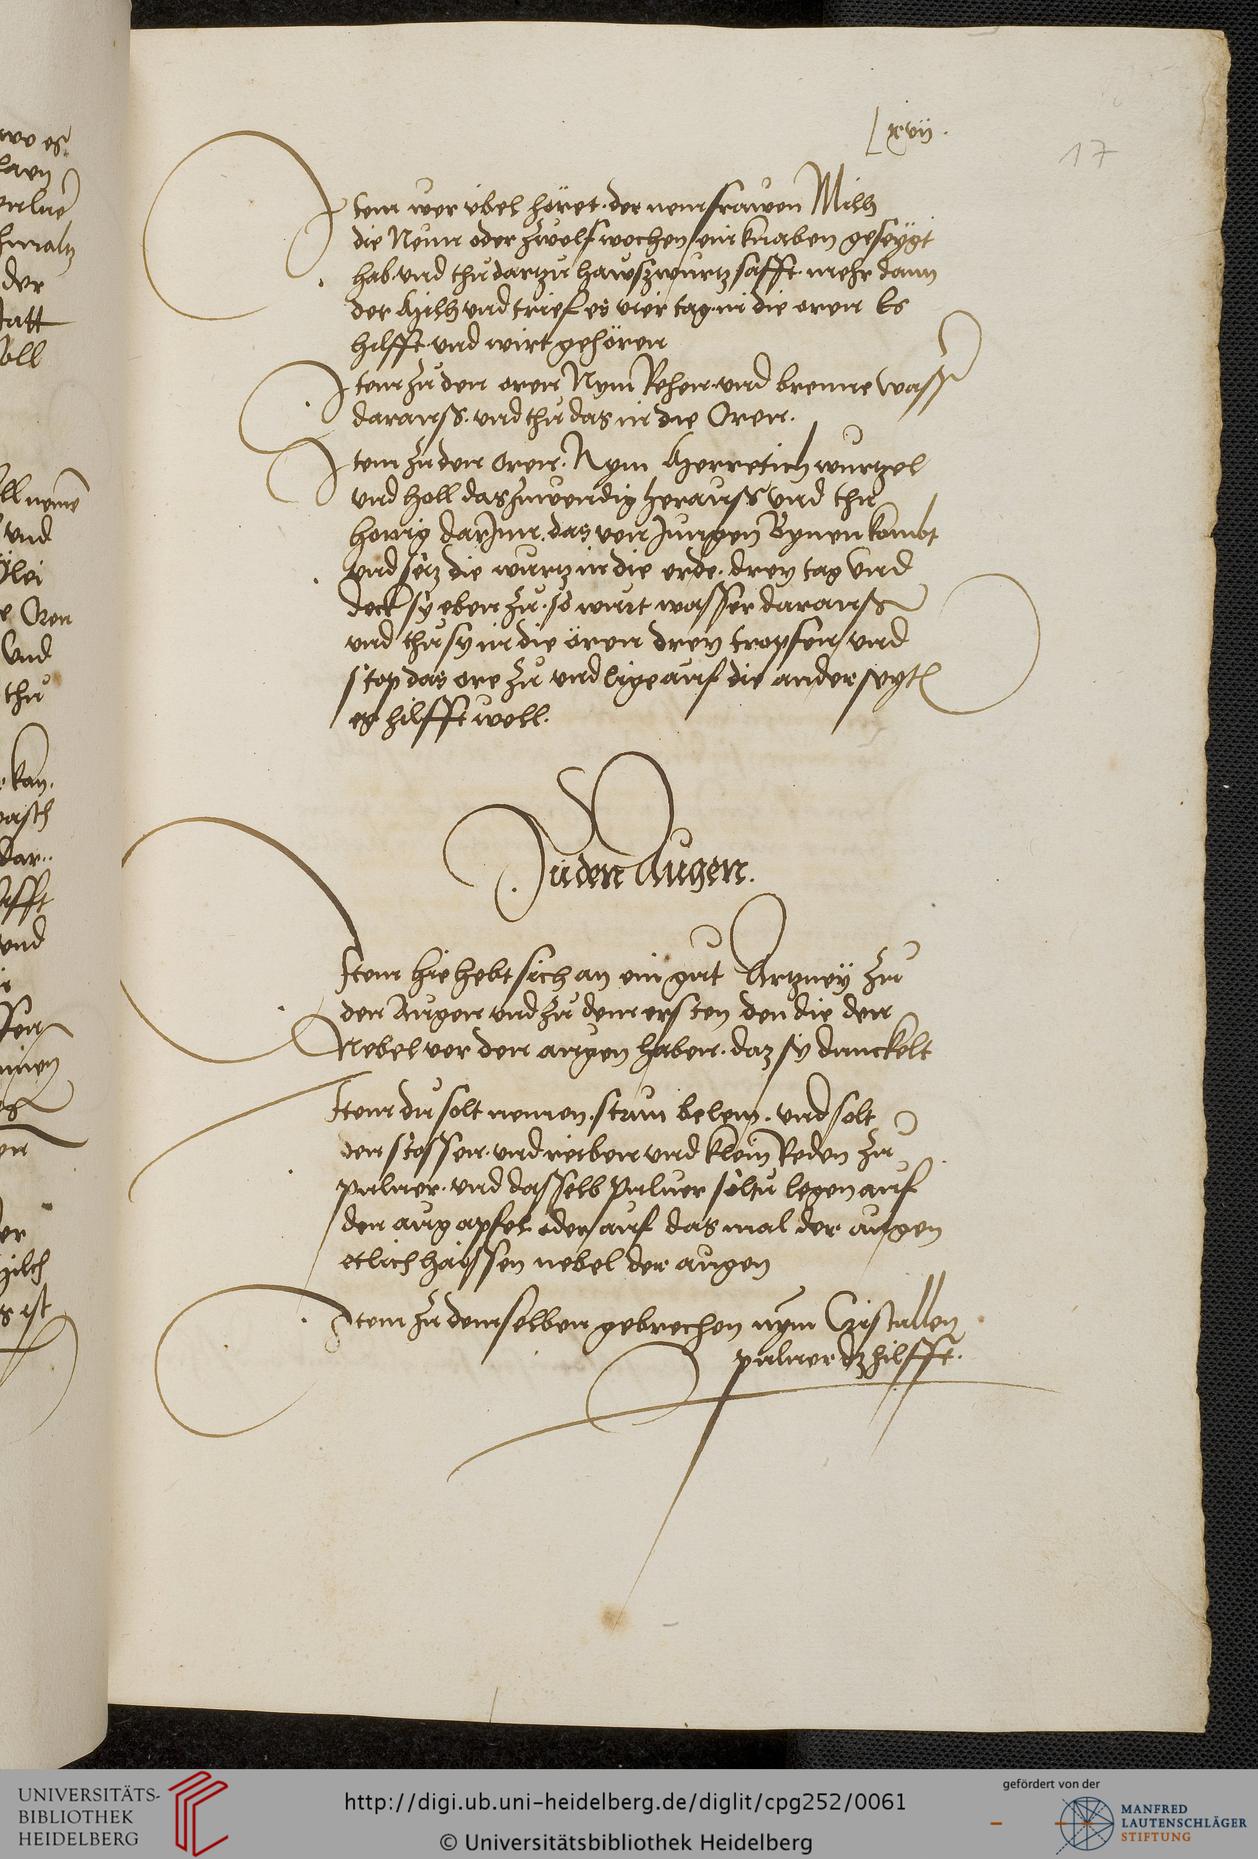 Lxvij.
17
Item wer übel höret. der nem frawen Milh
die Neun oder zwelf wochen ein knaben geseÿgt
hab. vnd thu dartzu hawszwurtz safft. mehr dann
der Milh vnd trief es vier tag in die oren Es
hilfft vnd wirt gehören
Item zu den oren Nym Rehen vnd brenne wasser
darauß. vnd thu das in die Oren.
Item zu den Oren. Nym Merretich wurtzel
vnd holl das Inwendig herauß vnd thu
honig darjnn. das von Jungen Bynen kombt
vnd setz die wurtz in die erde. drey tag vnd
deck sy eben zu. so wirt wasser darauß
vnd thu sy in die ören drey tropfen vnd
stop das ore zu vnd lige auf die ander seyt
es hilfft woll.
Zu den Augen.
Item hie hebt sich an ein gut Artzney zu
den Augen vnd zu dem ersten den die den
Nebel vor den augen haben. daz sy dunckelt
Item du solt nemen. stein belem. vnd solt
den stossen. vnd reiben vnd klein Reden zu
puluer. vnd dasselb puluer soltu legen auf
den augapfel oder auf das mal der augen
etlich haissen nebel der augen
Item zu demselben gebrechen nym Cristallen
puluer dz hilfft.
wo es
der
statt
soll
nemen
vnd
Oren
vnd
thu
kan.
wasch
dar..
vnd
ist
UNIVERSITÄTS-
BIBLIOTHEK
HEIDELBERG
http://digi.ub.uni-heidelberg.de/diglit/cpg252/0061
© Universitätsbibliothek Heidelberg
gefördert von der
MANFRED
LAUTENSCHLÄGER
STIFTUNG